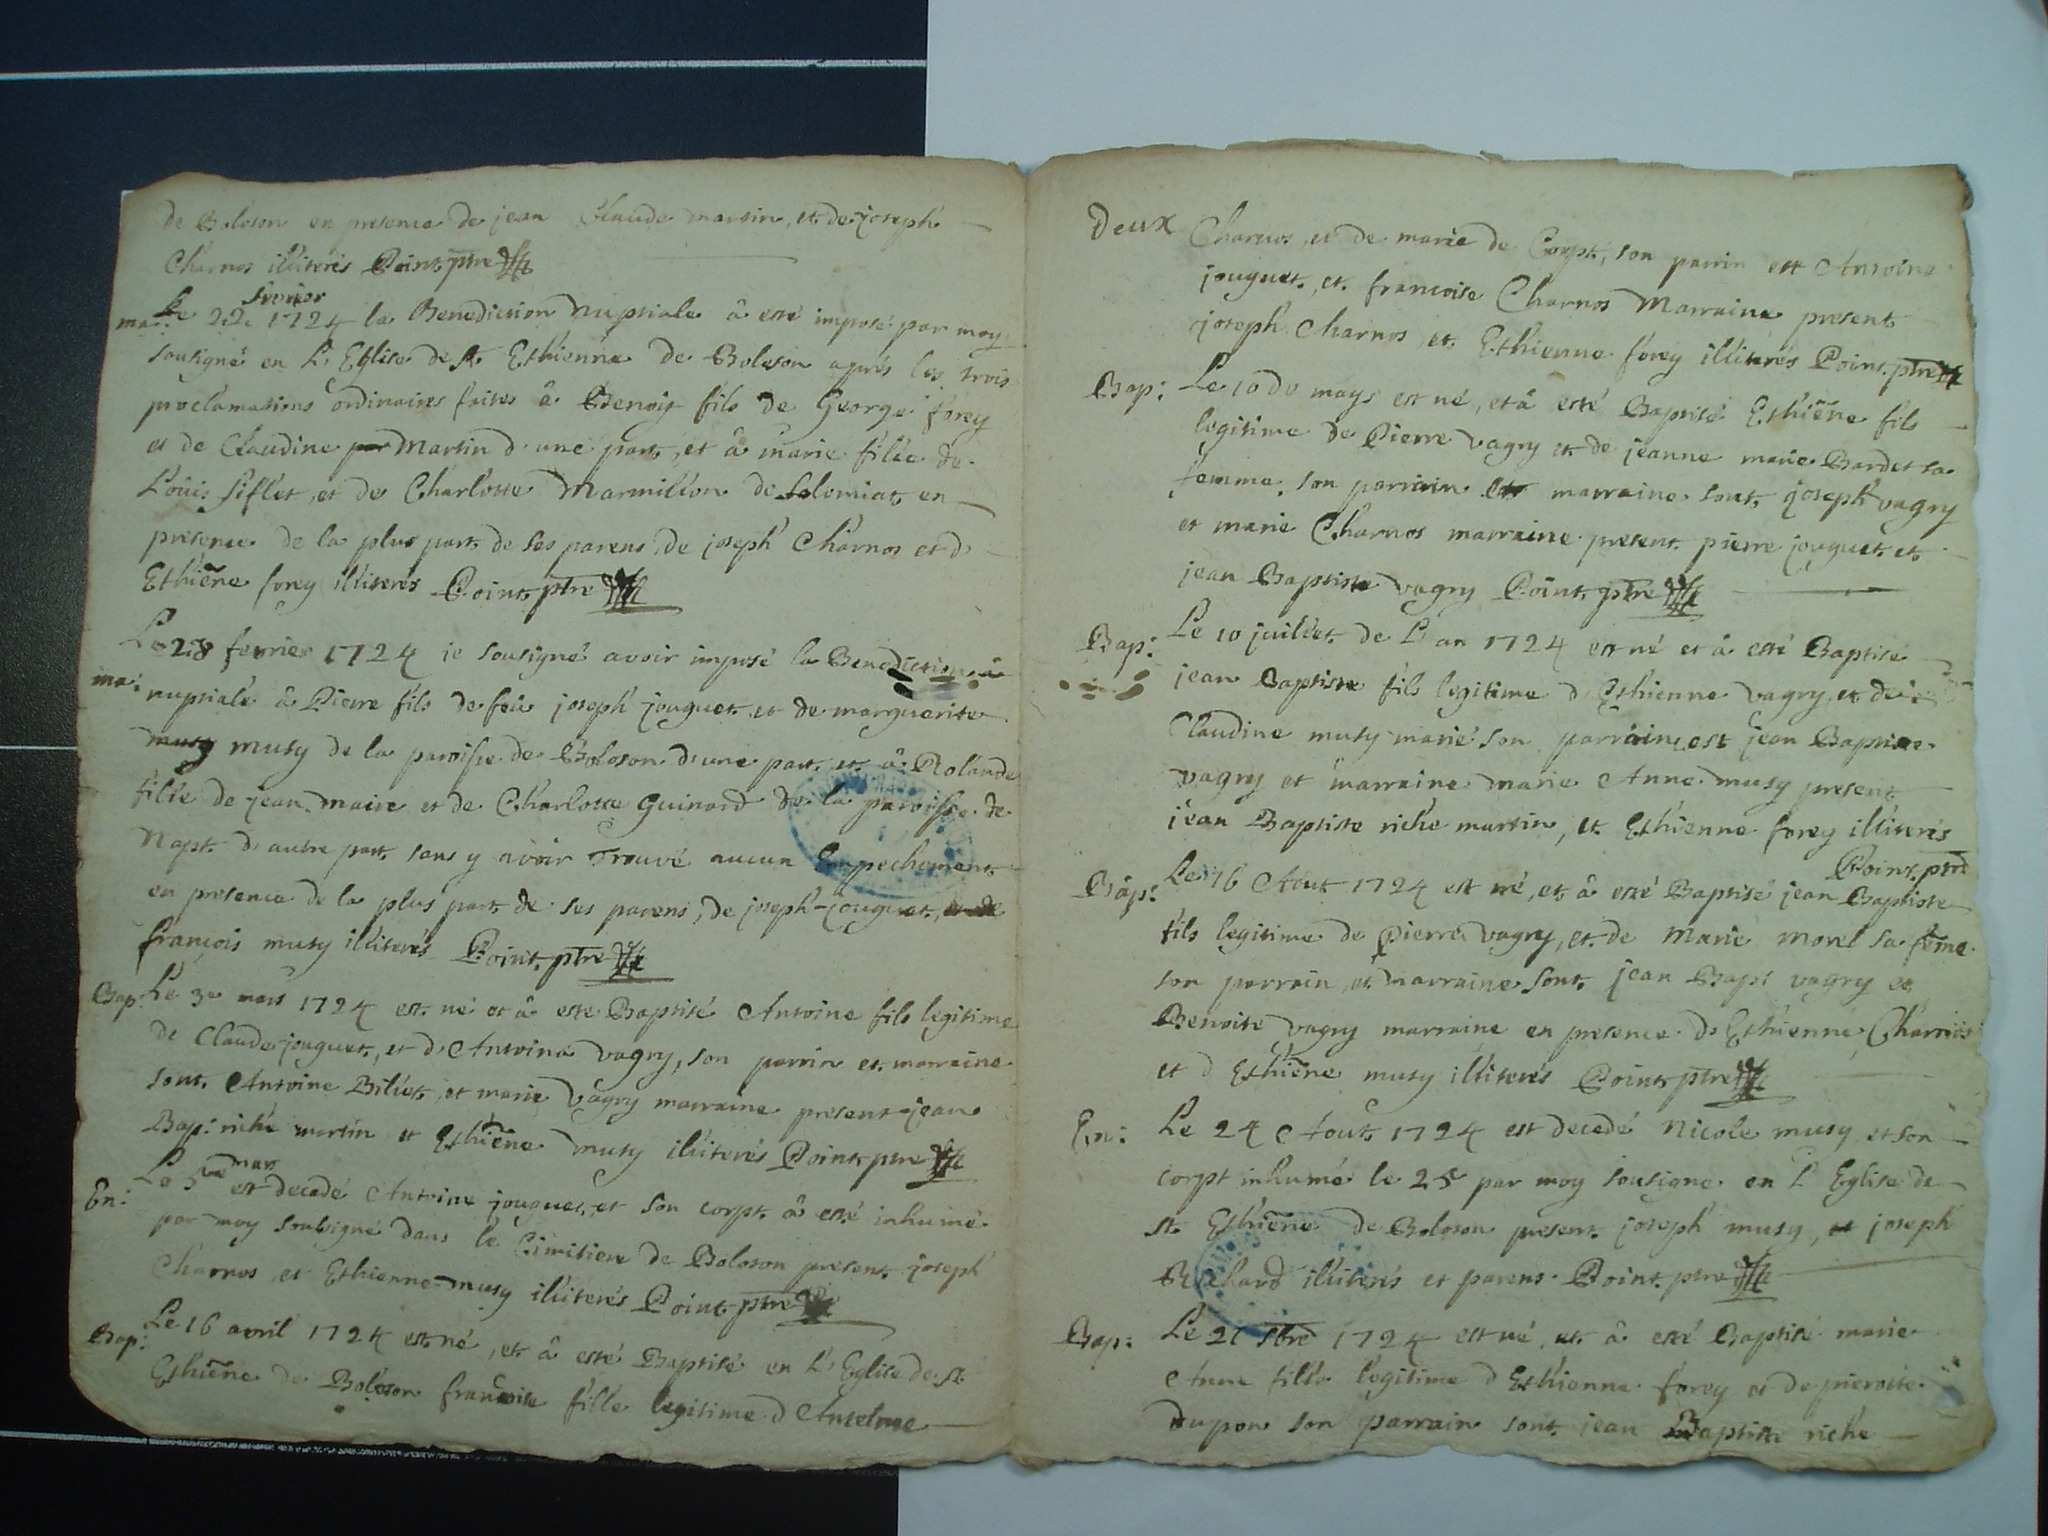 de Boloson en presence de jean Claude martin, et de joseph
Charnos illiterés Point ptre
mar: Le 22 fevrier 1724 la Benediction Nuptiale â esté imposé par moy
sousigné en L'Eglise de st Esthienne de Boloson aprés les trois
proclamations ordinaires faites â Benoiy fils de George forey
et de Claudine Martin d'une part, et â marie fillie de
Loüis siflet, et de Charlotte Marmilion de solomiat en
presence de la plus part de ses parens de joseph Charnos et d
Esthiēne forey illiterés Point ptre
Le 28 fevrier 1724 ie sousigné avoir imposé la Benediction
ma: nuptiale â Pierre fils de feü joseph jouguet et de marguerite
musy musy de la paroisse de Boloson d'une part et â Rolande
fillie de jean maire et de Charlotte Guinard de la paroisse de
Napt d'autre part sans y avoir trouvé aucun Empechement
en presence de la plus part de ses parens, de joseph jouguet, et de
françois musy illiterés Point ptre
Bap: Le 3e mars 1724 est né et â esté Baptisé Antoine fils legitime
de Claude jouguet, et d'Antoina vagry, son parrin et marraine
sont Antoine Biliet, et marie vagry marraine present jean
Bap: riché martin et Esthiēne musy illiterés Point ptre
En: Le 5me mars est decedé Antoine jouguet, et son corpt â esté inhumé
par moy soubsigné dans le Cimitiere de Boloson present joseph
Charnos et Esthienne musy illiterés Point ptre
Bap: Le 16 avril 1724 est né, et â esté Baptisé en L'Eglise de st
Esthiēne de Boloson françoise fille legitime d'Anselme
Deux
Charnos, et de marie de Corpt, son parrin est Antoine
jouguet, et francoise Charnos Marraine present
joseph Charnos, et Esthienne forey illiterés Point ptre
Bap: Le 10 du mays est né, et â esté Baptisé Esthiēne fils
legitime de Pierre vagry et de jeanne marie Bardet sa
femme, son parrain et marraine sont joseph vagry
et marie Charnos marraine present pierre jouguet et
jean Baptiste vagry Point ptre
Bap: Le 10 juillet de L'an 1724 est né et â esté Baptisé
jean Baptiste fils legitime d'Esthienne vagry, et de
Claudine musy mariés son parrain est jean Baptiste
vagry et marraine marie Anne musy present
jean Baptiste riche martin, et Esthienne forey illiterés
Point ptre
Bap: Le 16 Aout 1724 est né, et â esté Baptisé jean Baptiste
fils legitime de Pierre vagry, et de Marie morel sa feme
son parrain, et marraine sont jean Bapt vagry et
Benoite vagry marraine en presence d'Esthienne Charnos
et d'Esthiēne musy illiterés Point ptre
En: Le 24 Aout 1724 est decedé Nicole musy et son
corpt inhumé le 25 par moy sousigne en L'Eglise de
st Esthiēne de Boloson present joseph musy, et joseph
illiterés et parens Point ptre
Bap: Le 21 1724 est né et â esté Baptisé marie
Anne fille legitime d'Esthienne forey et de pierotte
dupon son parrain sont jean Baptiste riché